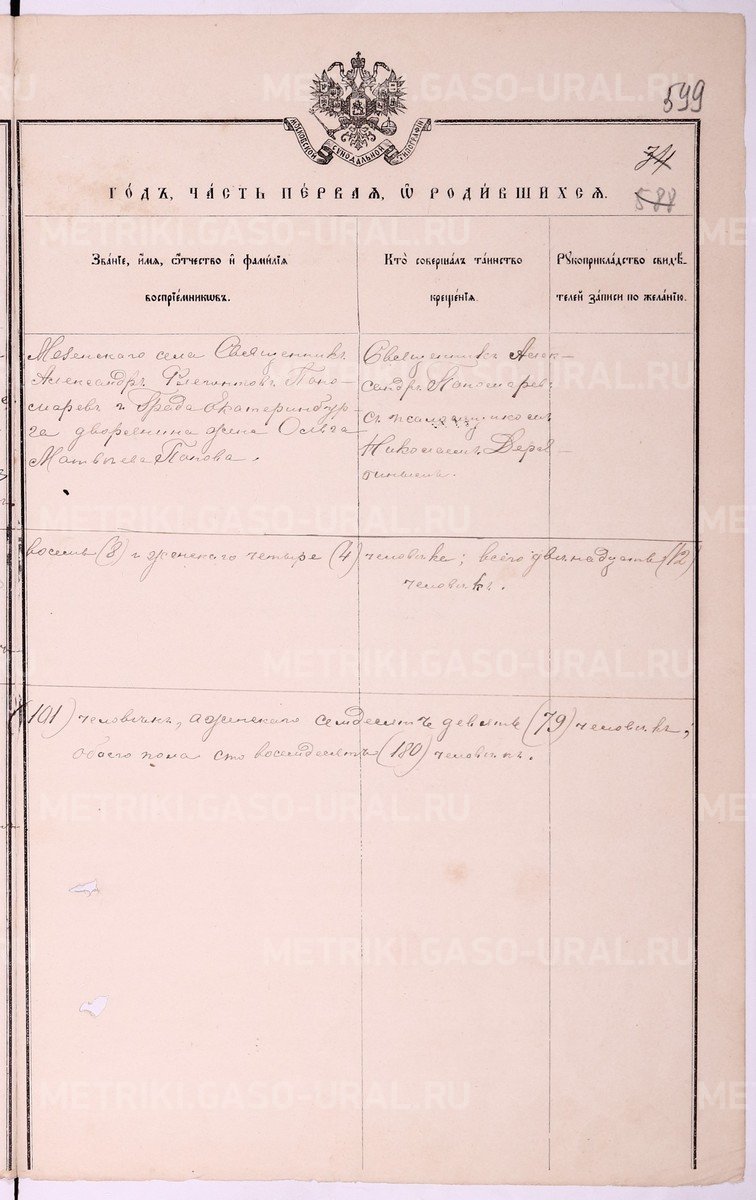 599
МОСКОВСКОЙ СѴНОДАЛЬНОЙ ТИПОГРАФІИ
34
588
ГО́ДЪ, ЧА́СТЬ ПЕ́РВАЯ, Ѽ РОДИ́ВШИХСЯ.
Зва́нїе, и҆́мѧ, ѻ҆́тчество и҆ фами́лїѧ воспрїе́мникѡвъ.
Кто̀ соверша́лъ та́инство креще́нїѧ.
Рꙋкоприкла́дство свидѣ́телей за́писи по жела́нїю.
Мезенскаго села Священникъ
Александръ Флегонтовъ Поно-
маревъ и Града Екатеринбур-
га дворянина жена Ольга
Матвѣева Попова.
Священникъ Алек-
сандръ Пономаревъ
съ псаломщикомъ
Николаемъ Деря-
бинымъ.
восемь (8) и женскаго четыре (4) человѣка; всего двѣнадцать (12)
человѣкъ.
(101) человѣкъ, а женскаго семдесятъ девять (79) человѣкъ;
обоего пола сто восемдесятъ (180) человѣкъ.
METRIKI.GASO-URAL.RU